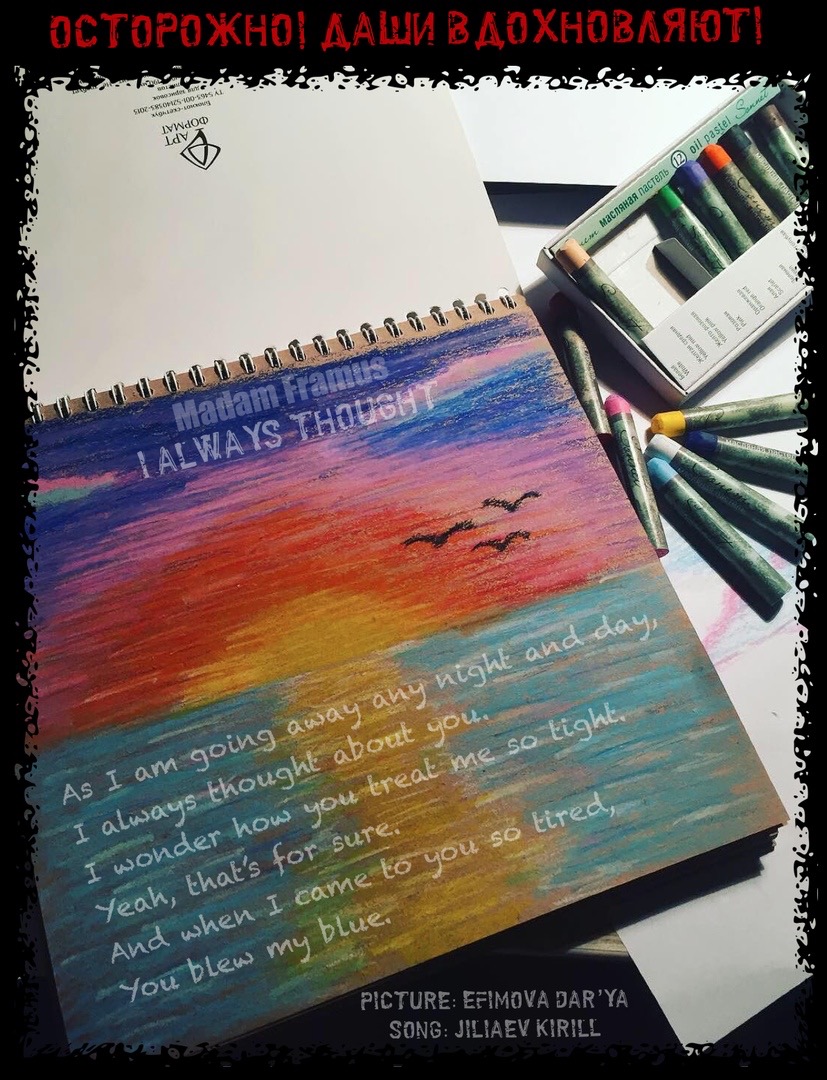 ОСТОРОЖНО! ДАШИ ВДОХНОВЛЯЮТ!
АРТ
ФОРМАТ
Блокнот-скетчбук
для зарисовок
ТУ 5463-001-52140585-2015
масляная пастель 12 oil pastel Sonnet
Madam Framus
I ALWAYS THOUGHT
As I am going away any night and day,
I always thought about you.
I wonder how you treat me so tight.
Yeah, that's for sure.
And when I came to you so tired,
You blew my blue.
PICTURE: EFIMOVA DAR'YA
SONG: JILIAEV KIRILL